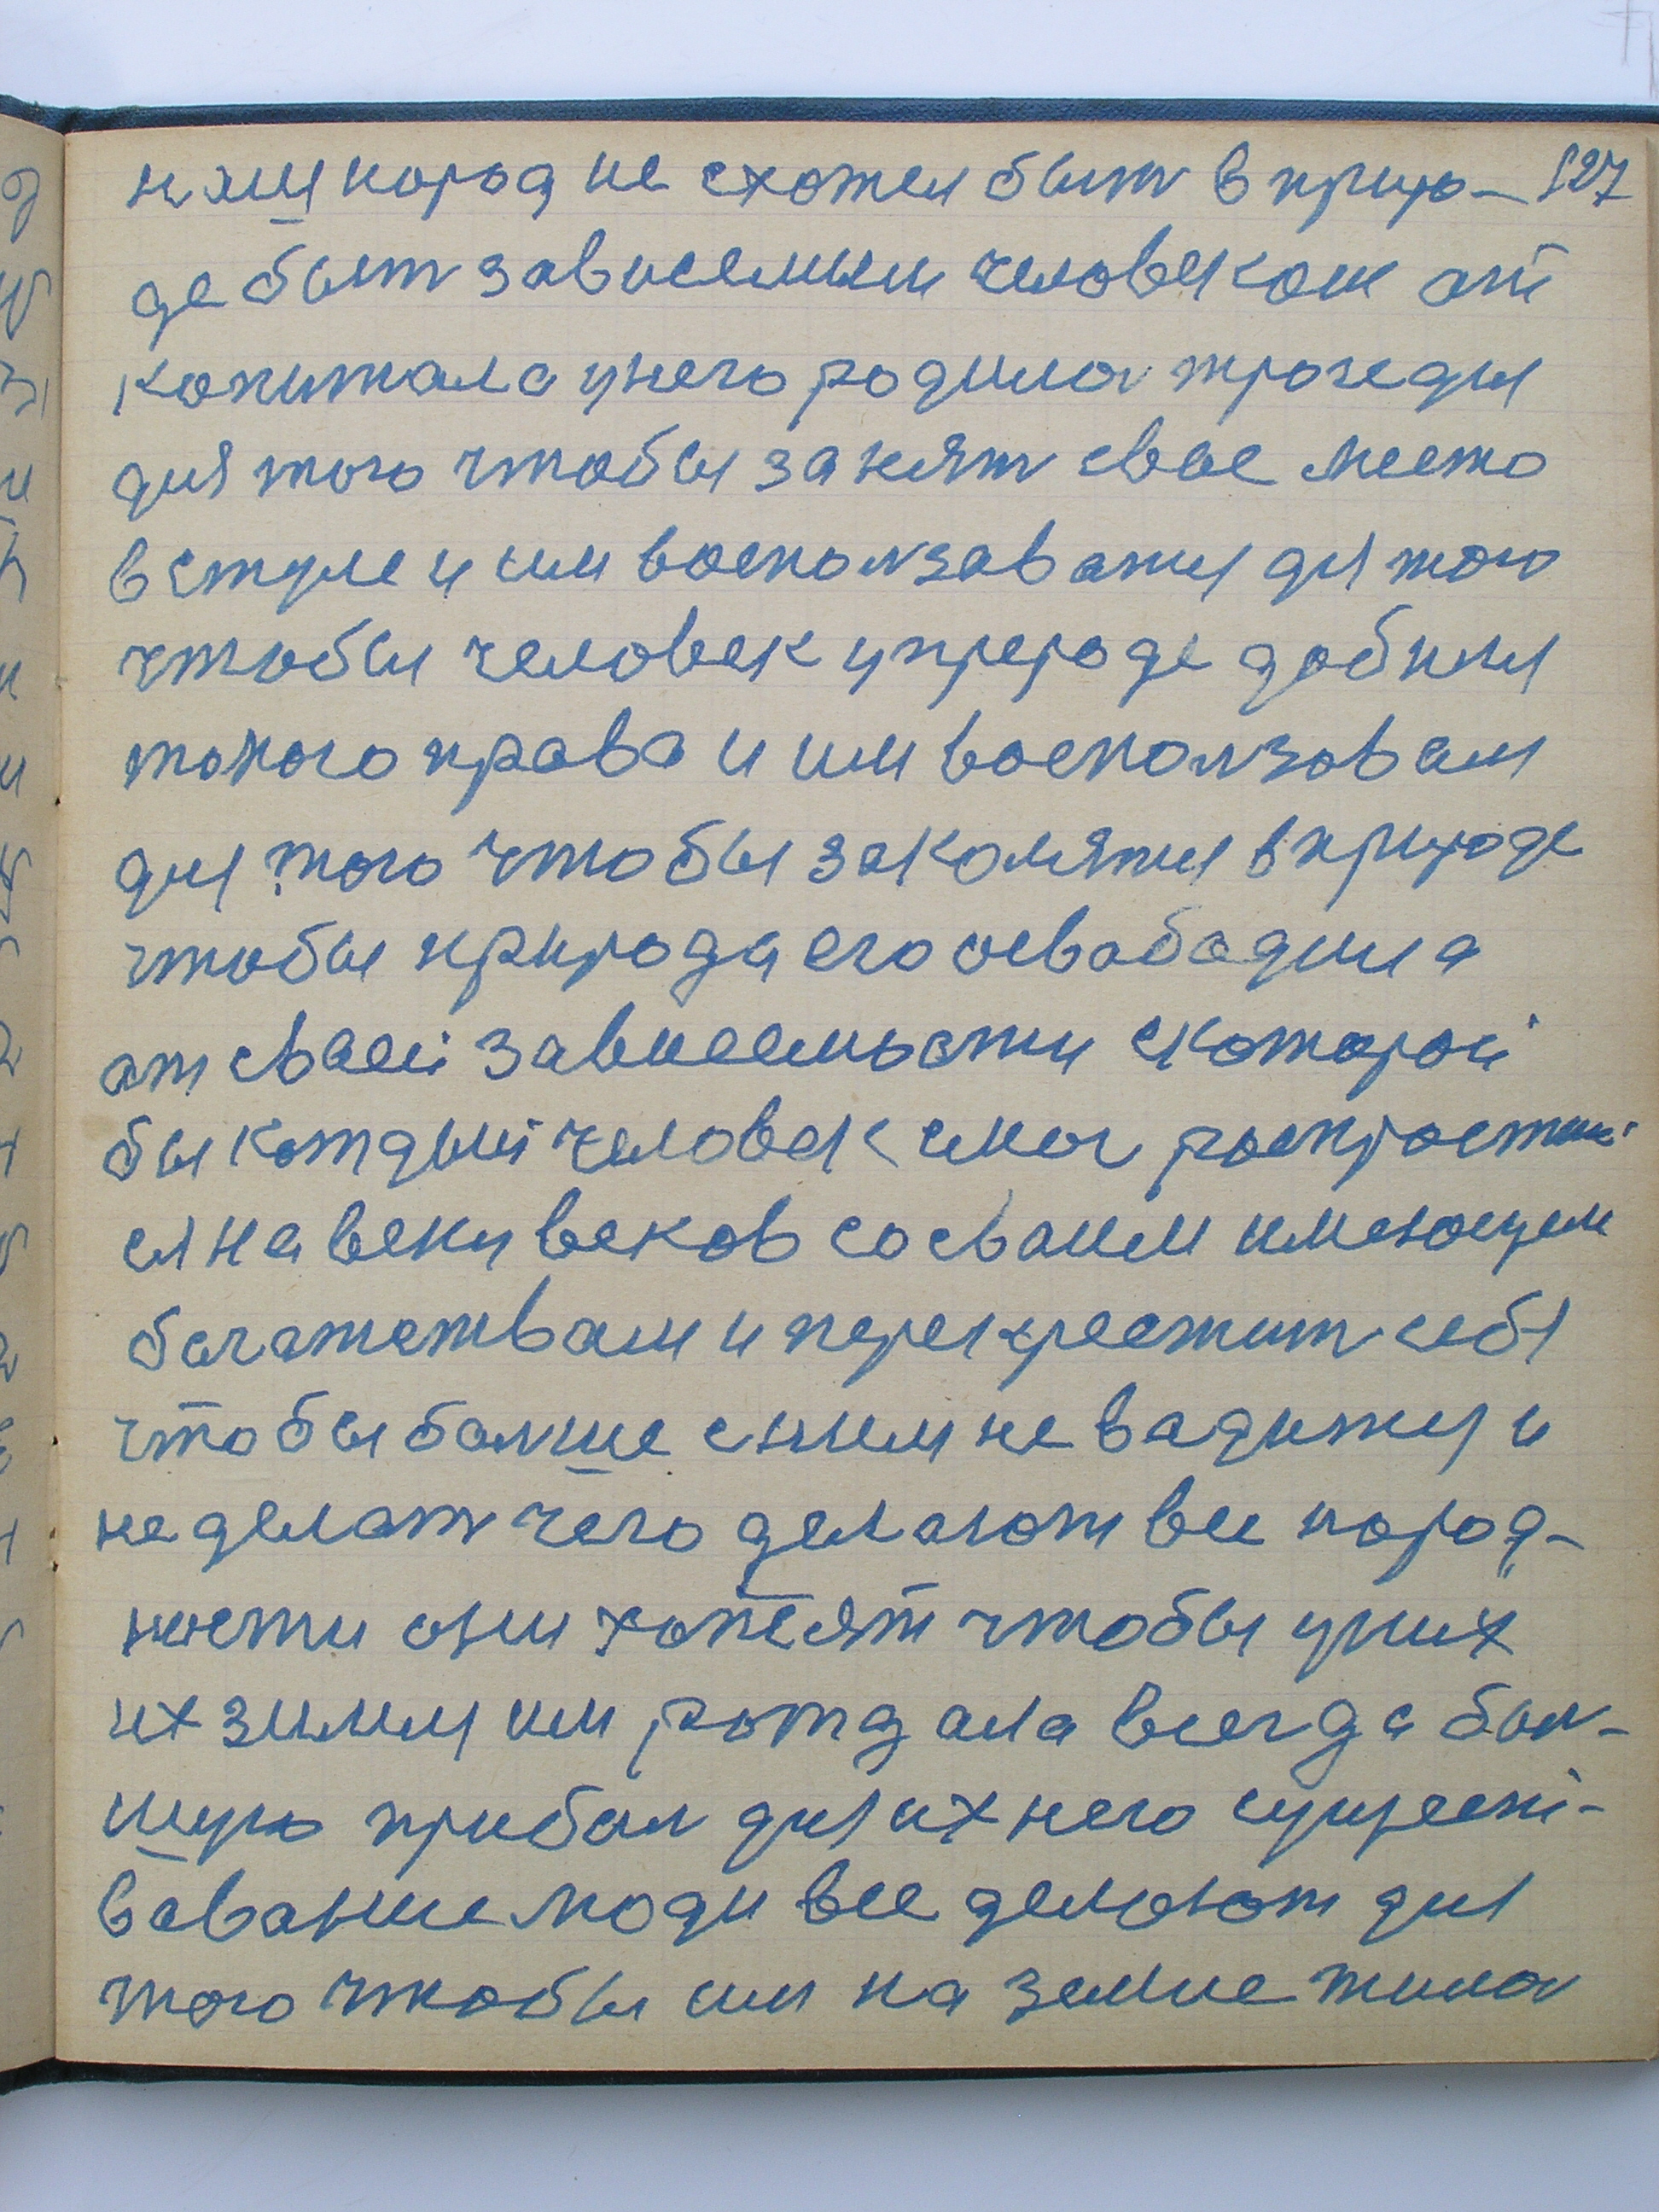 наш народ не схотел быт в приро- 127
де быт зависемым человеком от
копитала у него родилос трогедия
для того чтобы занят свое место
в стуле и им восползаватся для того
чтобы человек у прероде добился
токого права и им восползовался
для того чтобы заколятся в природе
чтобы природа его освабадила
от сваей зависемости с которой
бы котдый человек смог роспростит
ся на веки веков со сваим имеющем
багатством и перекрестит себя
чтобы болше с ним не вадится и
не делат чего делают все народ-
ности они хотелят чтобы у них
их зимля им ротдала всегда бол-
шую прибол для ихнего сущест-
вавание люди все делают для
того чтобы им на земле жилос